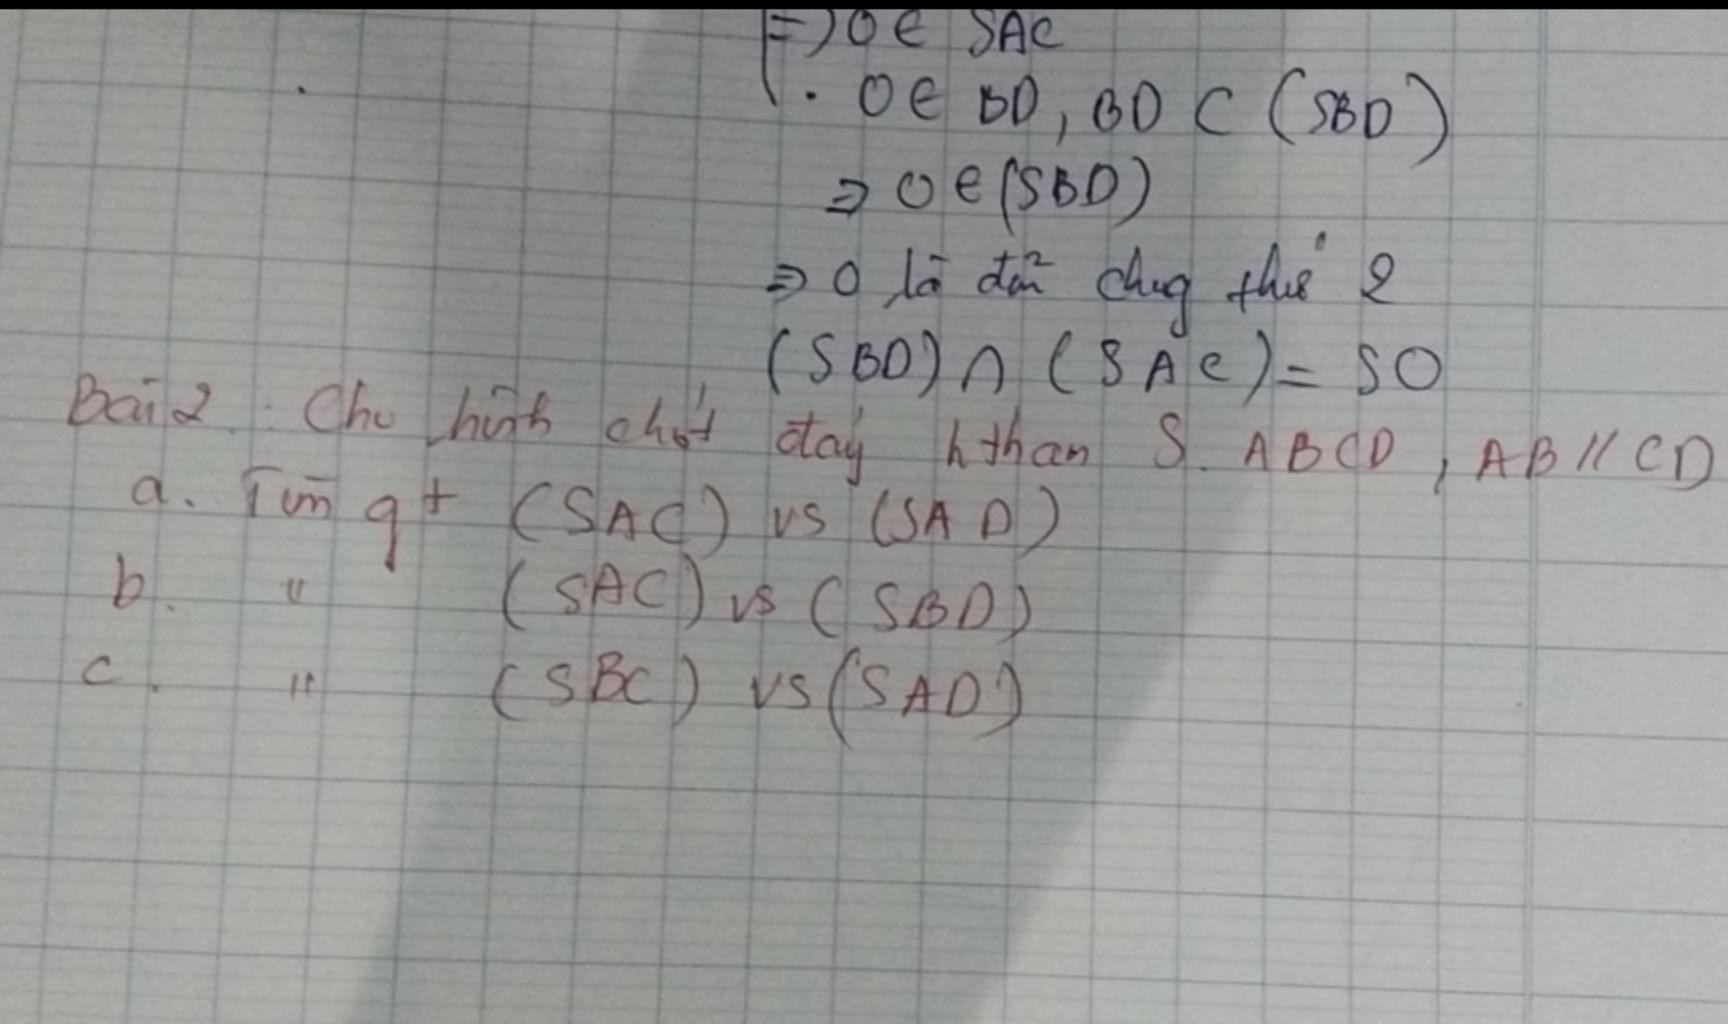 =) O ∈ SAC
. O ∈ BD, BD ⊂ (SBD)
⇒ O ∈ (SBD)
⇒ O là chug thứ 2
(SBD) ∩ (SAC) = SO
Bài 2. Cho hình chót đáy hthan S. ABCD, AB // CD
a. Tìm gt (SAC) vs (SAD)
b. " (SAC) vs (SBD)
c. " (SBC) vs (SAD)